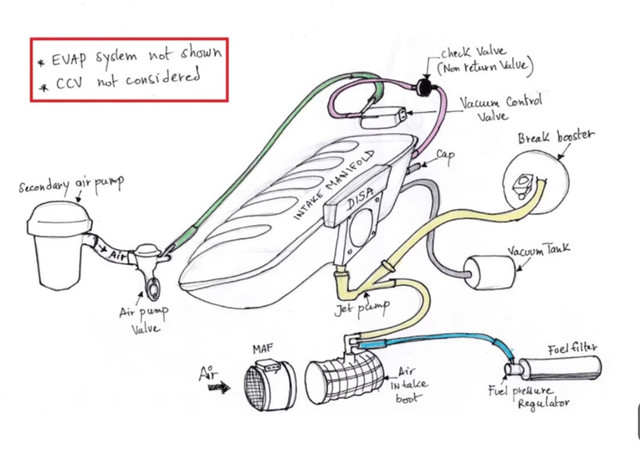 * EVAP system not shown
* CCV not considered
check Valve
(Non return Valve)
Vacuum Control
Valve
Break booster
Cap
INTAKE MANIFOLD
DISA
Secondary air pump
Air
Air pump
Valve
Vacuum Tank
Jet pump
MAF
Air
Air
intake
boot
Fuel filter
Fuel pressure
Regulator